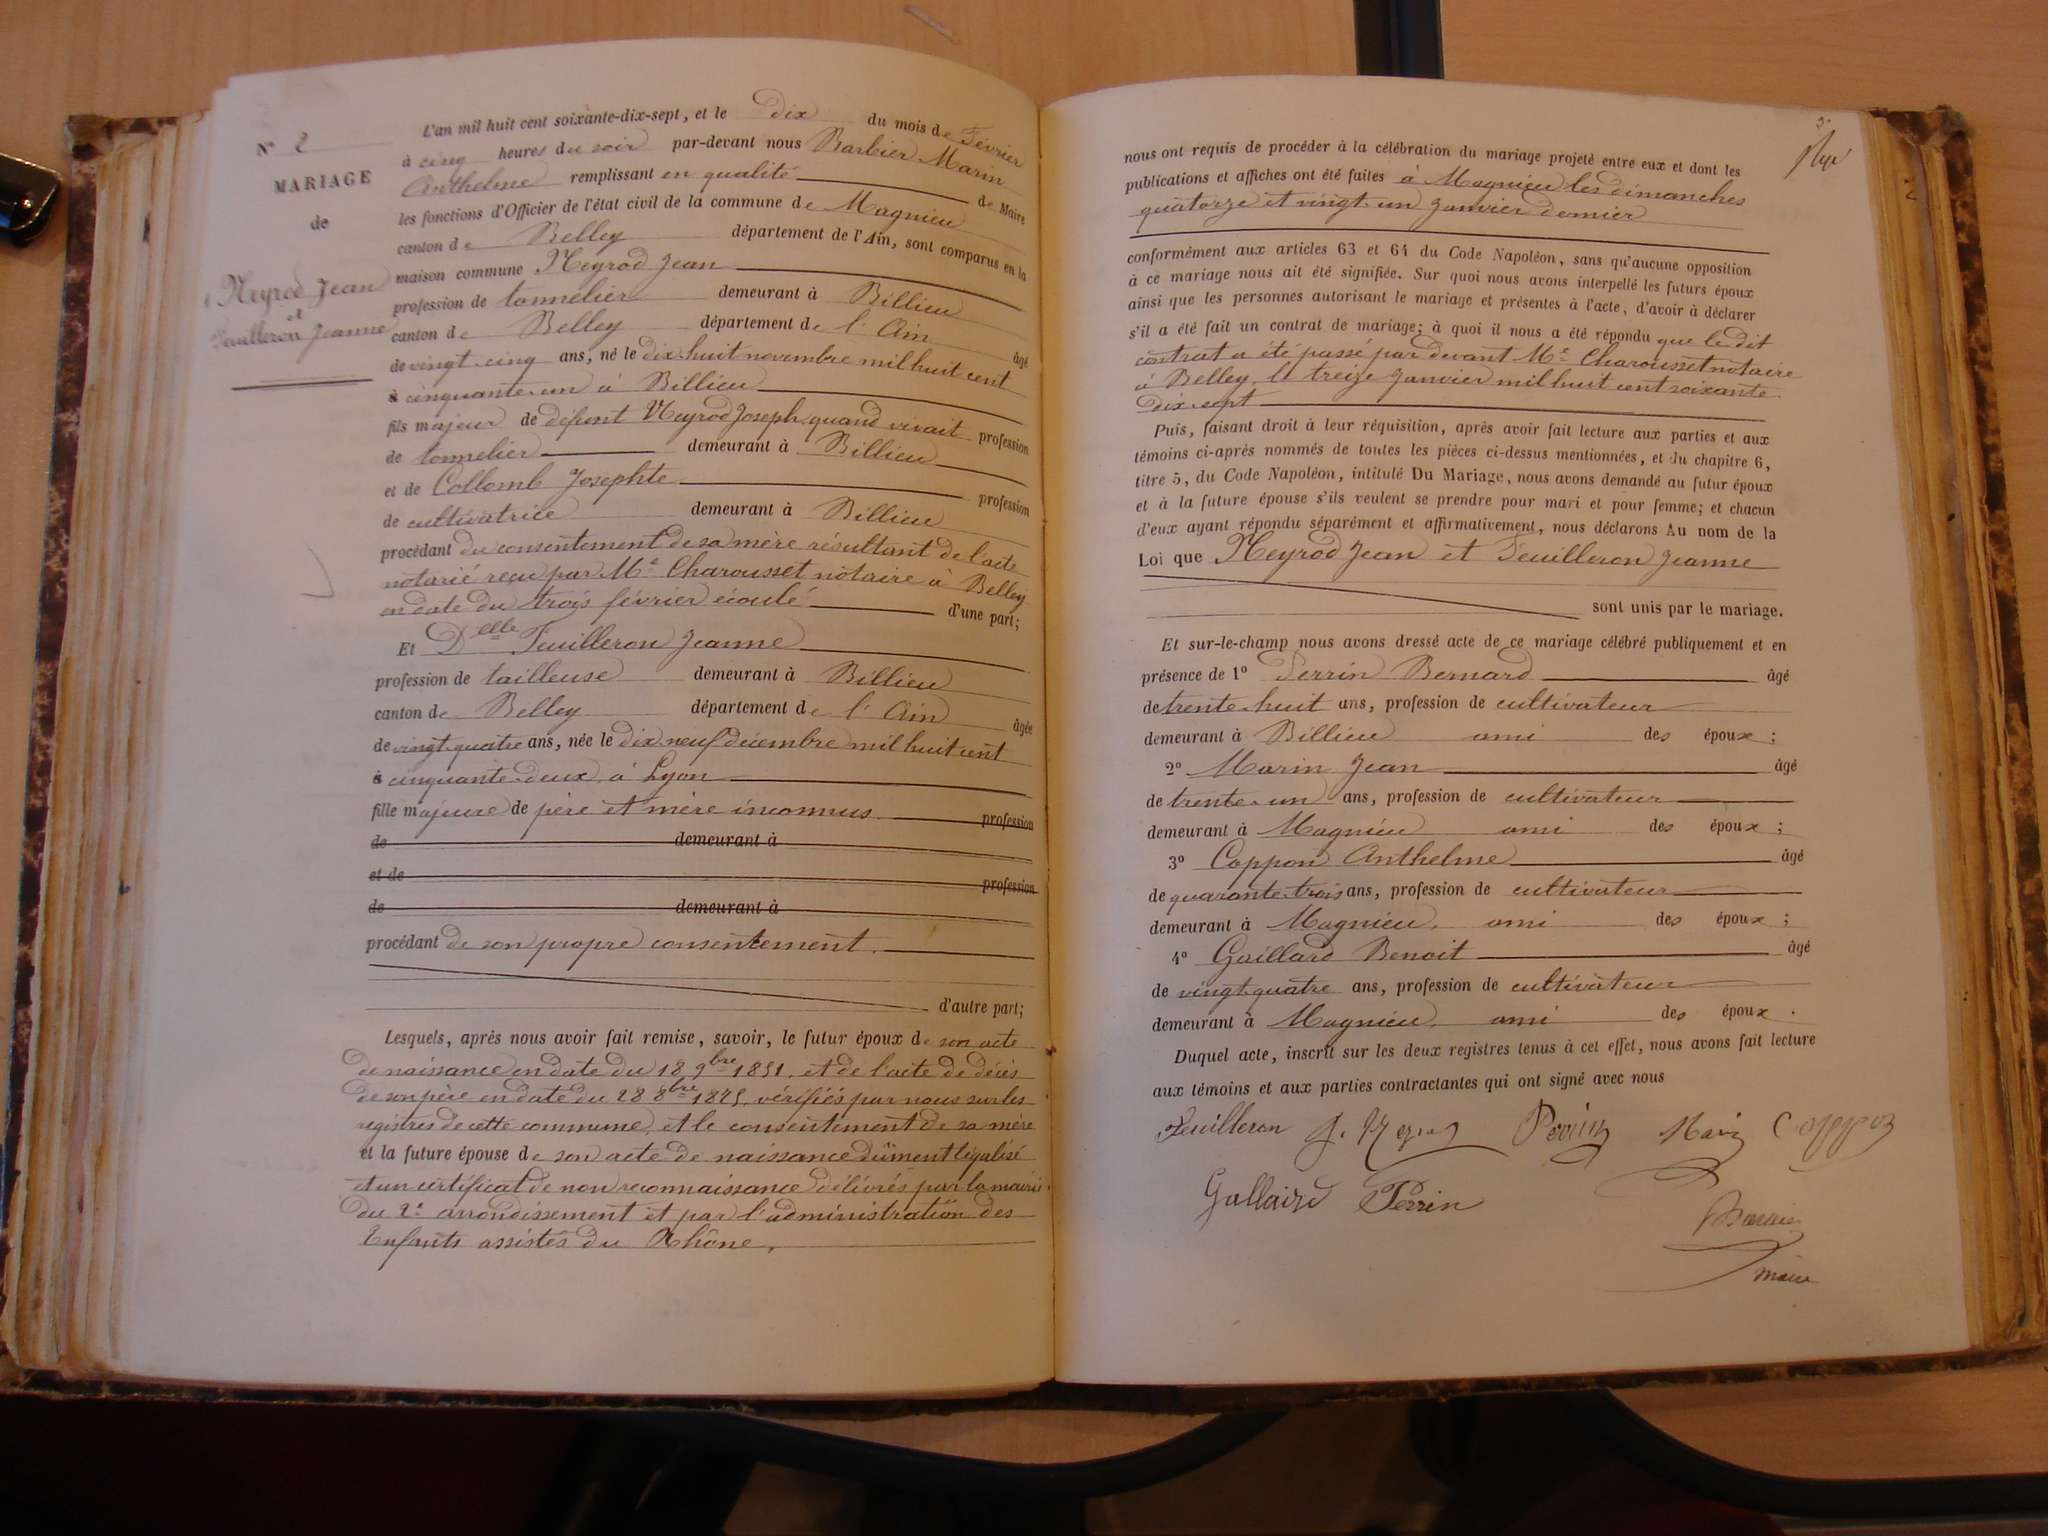 N° 2
MARIAGE
de
Neyrod Jean
et
Feuilleron Jeanne
L'an mil huit cent soixante-dix-sept, et le Dix du mois de Février
à cinq heures du soir par-devant nous Barbier Marin
Anthelme remplissant en qualité de Maire
les fonctions d'Officier de l'état civil de la commune de Magnieu
canton de Belley département de l'Ain, sont comparus en la
maison commune Neyrod Jean
profession de tonnelier demeurant à Billieu
canton de Belley département de l'Ain âgé
de vingt-cinq ans, né le dix-huit novembre mil huit cent
à cinquante-un à Billieu
fils majeur de defunt Neyrod Joseph quand vivait profession
de tonnelier demeurant à Billieu
et de Collomb Josephte profession
de cultivatrice demeurant à Billieu
procédant du consentement de sa mère résultant de l'acte
notarié reçu par Me Charousset notaire à Belley
en date du trois février écoulé d'une part;
Et Delle Feuilleron Jeanne
profession de tailleuse demeurant à Billieu
canton de Belley département de l'Ain âgée
de vingt-quatre ans, née le dix-neuf décembre mil huit cent
à cinquante-deux à Lyon
fille majeure de père et mère inconnus. profession
de demeurant à
et de profession
de demeurant à
procédant de son propre consentement.
d'autre part;
Lesquels, après nous avoir fait remise, savoir, le futur époux de son acte
de naissance en date du 18 9bre 1851. et de l'acte de décès
de son père en date du 28 8bre 1875, vérifiés par nous sur les
registres de cette commune, et le consentement de sa mère
et la future épouse de son acte de naissance dûment légalisé
et un certificat de non reconnaissance délivrés par la mairie
du 2e arrondissement et par l'administration des
Enfants assistés du Rhône,
3.
nous ont requis de procéder à la célébration du mariage projeté entre eux et dont les
publications et affiches ont été faites à Magnieu les dimanches
quatorze et vingt-un Janvier dernier
conformément aux articles 63 et 64 du Code Napoléon, sans qu'aucune opposition
à ce mariage nous ait été signifiée. Sur quoi nous avons interpellé les futurs époux
ainsi que les personnes autorisant le mariage et présentes à l'acte, d'avoir à déclarer
s'il a été fait un contrat de mariage; à quoi il nous a été répondu que le dit
contrat a été passé par devant Me Charousset notaire
à Belley, le treize Janvier mil huit cent soixante
dix-sept
Puis, faisant droit à leur réquisition, après avoir fait lecture aux parties et aux
témoins ci-après nommés de toutes les pièces ci-dessus mentionnées, et du chapitre 6,
titre 5, du Code Napoléon, intitulé Du Mariage, nous avons demandé au futur époux
et à la future épouse s'ils veulent se prendre pour mari et pour femme; et chacun
d'eux ayant répondu séparément et affirmativement, nous déclarons Au nom de la
Loi que Neyrod Jean et Feuilleron Jeanne
sont unis par le mariage.
Et sur-le-champ nous avons dressé acte de ce mariage célébré publiquement et en
présence de 1° Perrin Bernard âgé
de trente-huit ans, profession de cultivateur
demeurant à Billieu ami des époux;
2° Marin Jean âgé
de trente-un ans, profession de cultivateur
demeurant à Magnieu ami des époux;
3° Coppon Anthelme âgé
de quarante-trois ans, profession de cultivateur
demeurant à Magnieu, ami des époux;
4° Gaillard Benoit âgé
de vingt-quatre ans, profession de cultivateur
demeurant à Magnieu, ami des époux.
Duquel acte, inscrit sur les deux registres tenus à cet effet, nous avons fait lecture
aux témoins et aux parties contractantes qui ont signé avec nous
Feuilleron J. Neyrod Perrin Marin Coppon
Gallaird Perrin
Barbier
maire